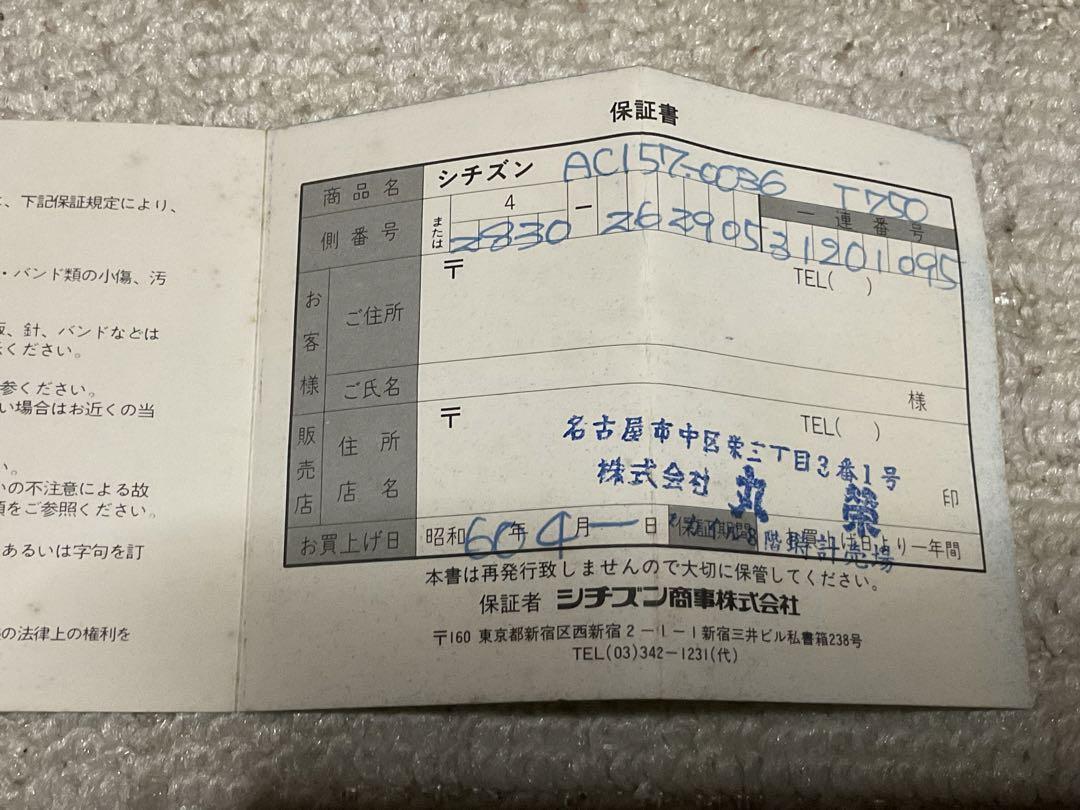 、下記保証規定により、
・バンド類の小傷、汚
、針、バンドなどは
ください。
参ください。
い場合はお近くの当
い。
いの不注意による故
をご参照ください。
あるいは字句を訂
の法律上の権利を
保証書
商品名 シチズン AC157-0036 T750
側番号 または 4 - 一連番号
2830 262905 31201095
お客様 ご住所 〒 TEL( )
ご氏名 様
販売店 住所 〒 TEL( )
名古屋市中区栄三丁目3番1号
店名 株式会社 丸榮 印
8階時計売場
お買上げ日 昭和60年4月一日 保証期間 お買上げ日より一年間
本書は再発行致しませんので大切に保管してください。
保証者 シチズン商事株式会社
〒160 東京都新宿区西新宿2-1-1新宿三井ビル私書箱238号
TEL(03)342-1231(代)